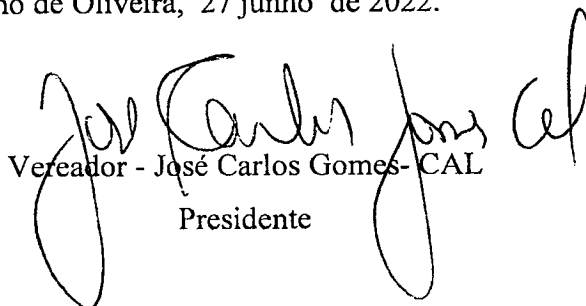 no de Oliveira, 27 junho de 2022.
José Carlos Gomes Cal
Vereador - José Carlos Gomes- CAL
Presidente